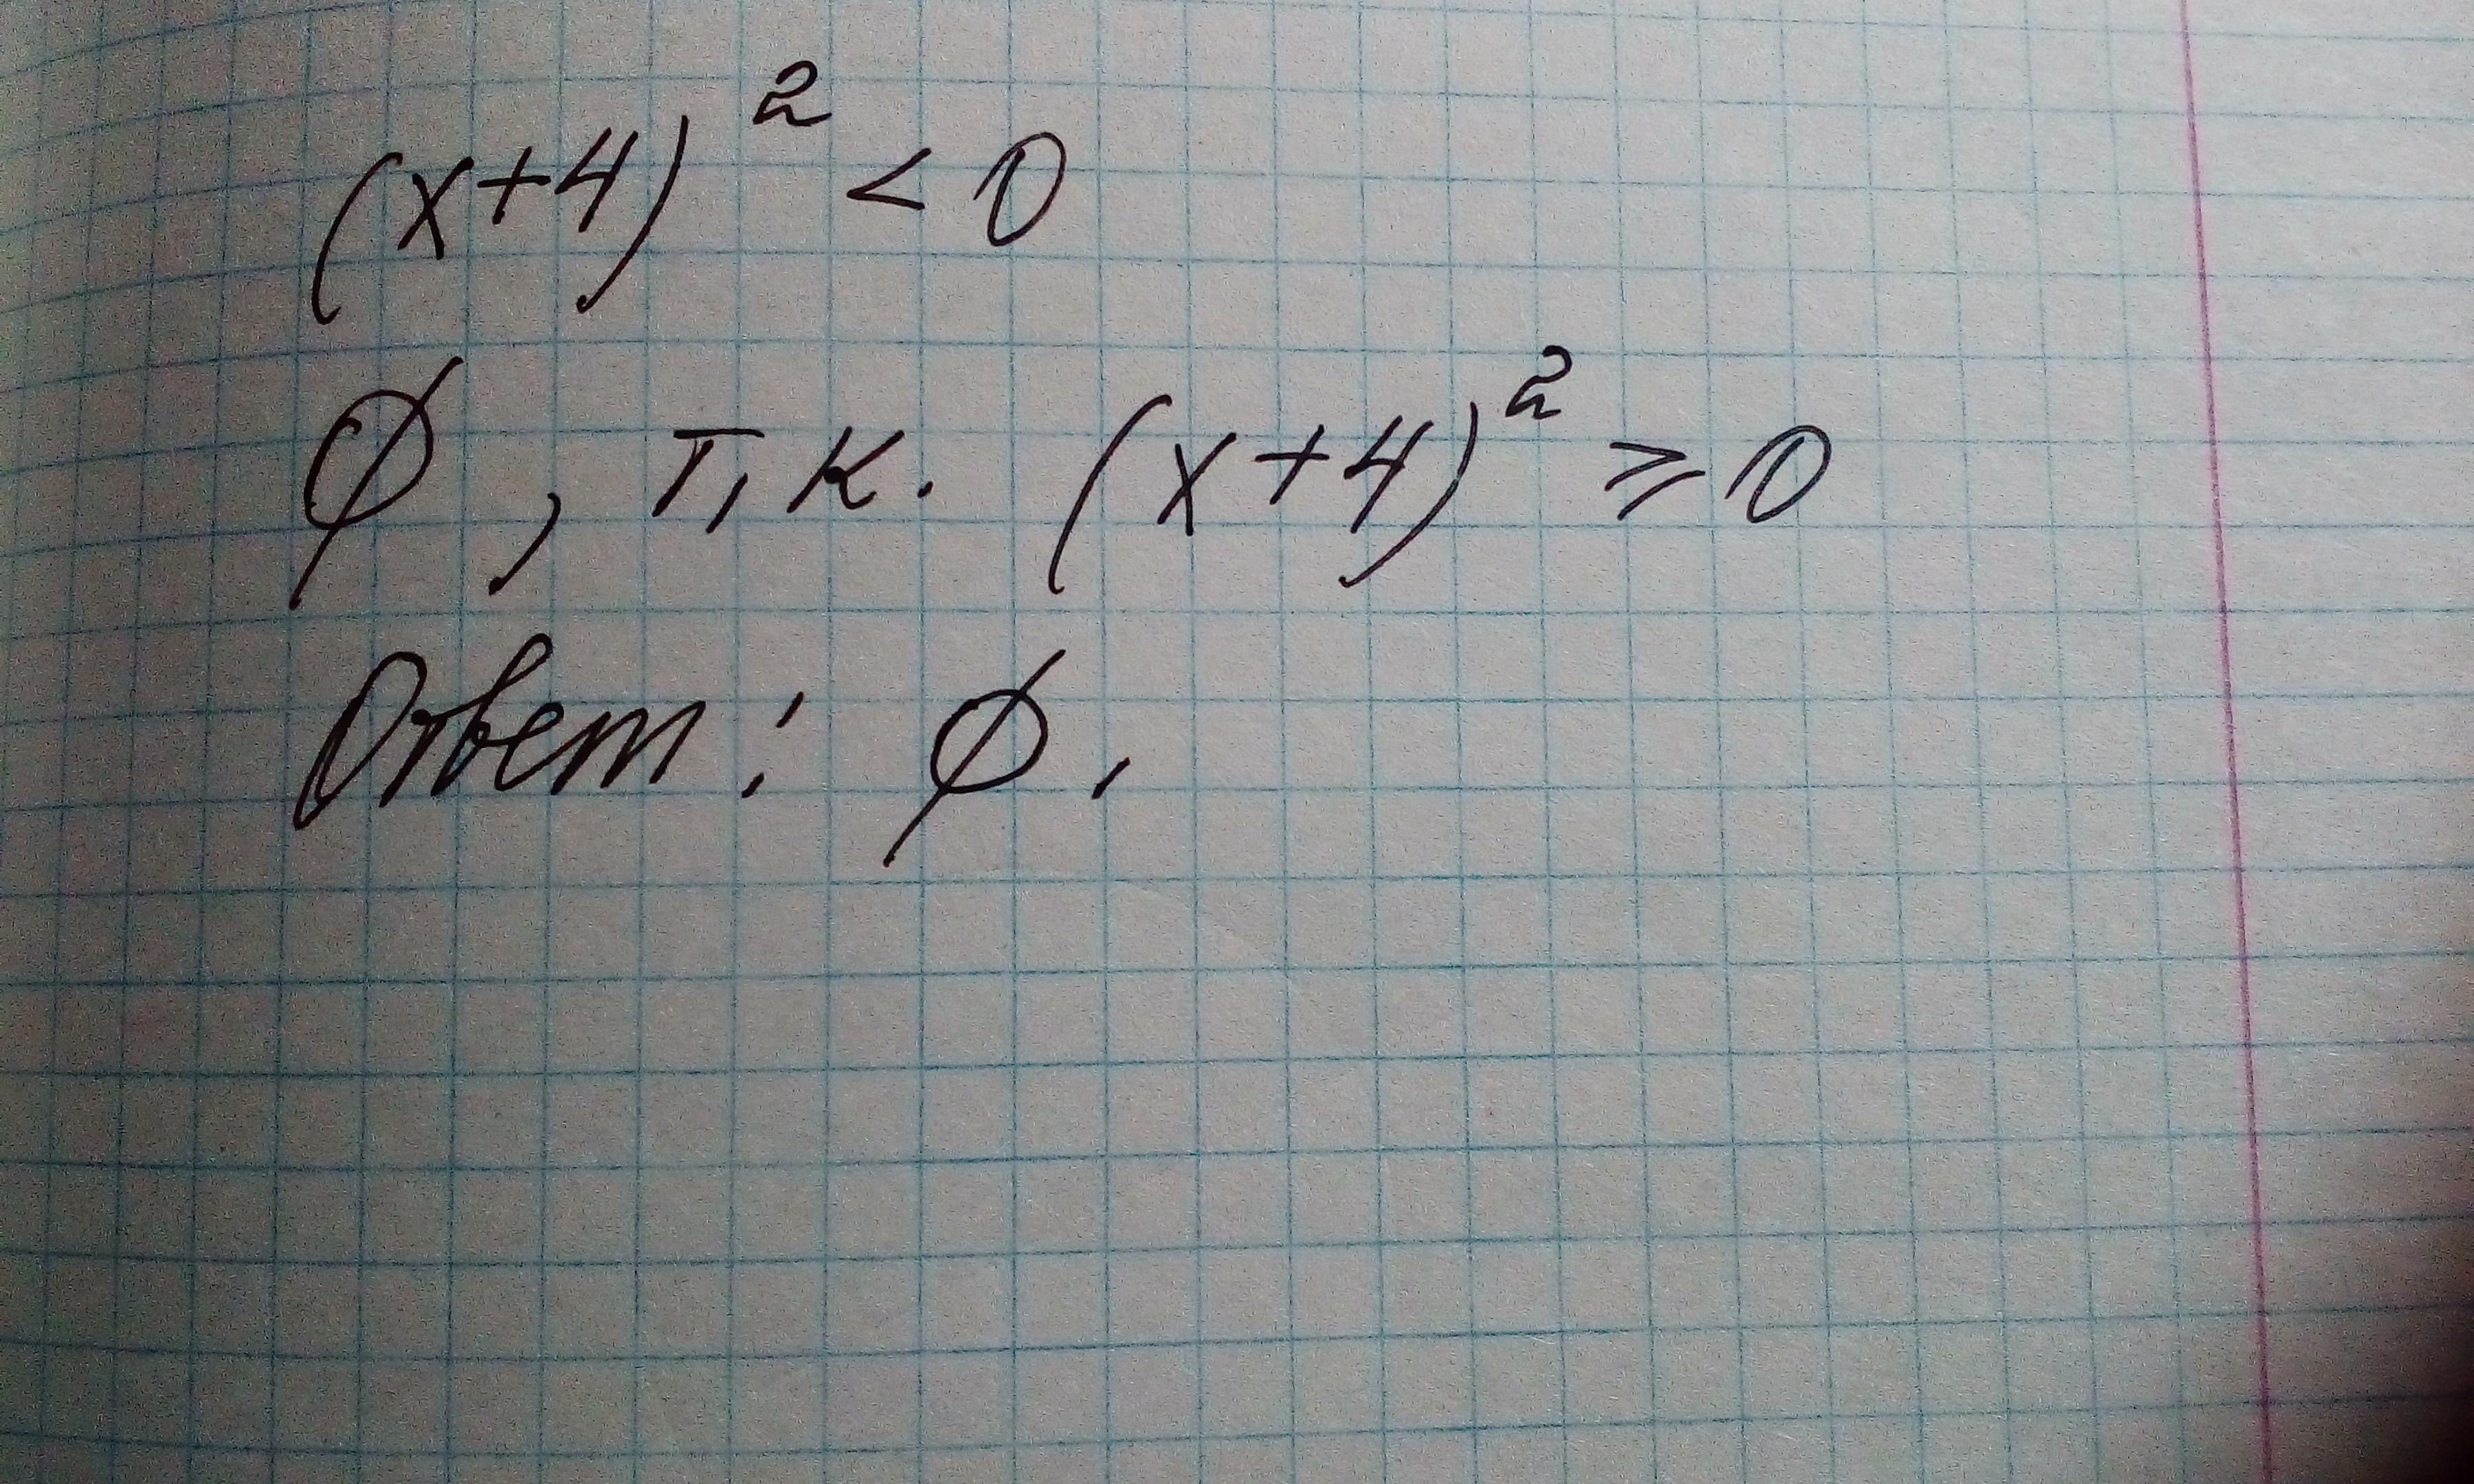 (x+4)² < 0
∅, т.к. (x+4)² ⩾ 0
Ответ: ∅.